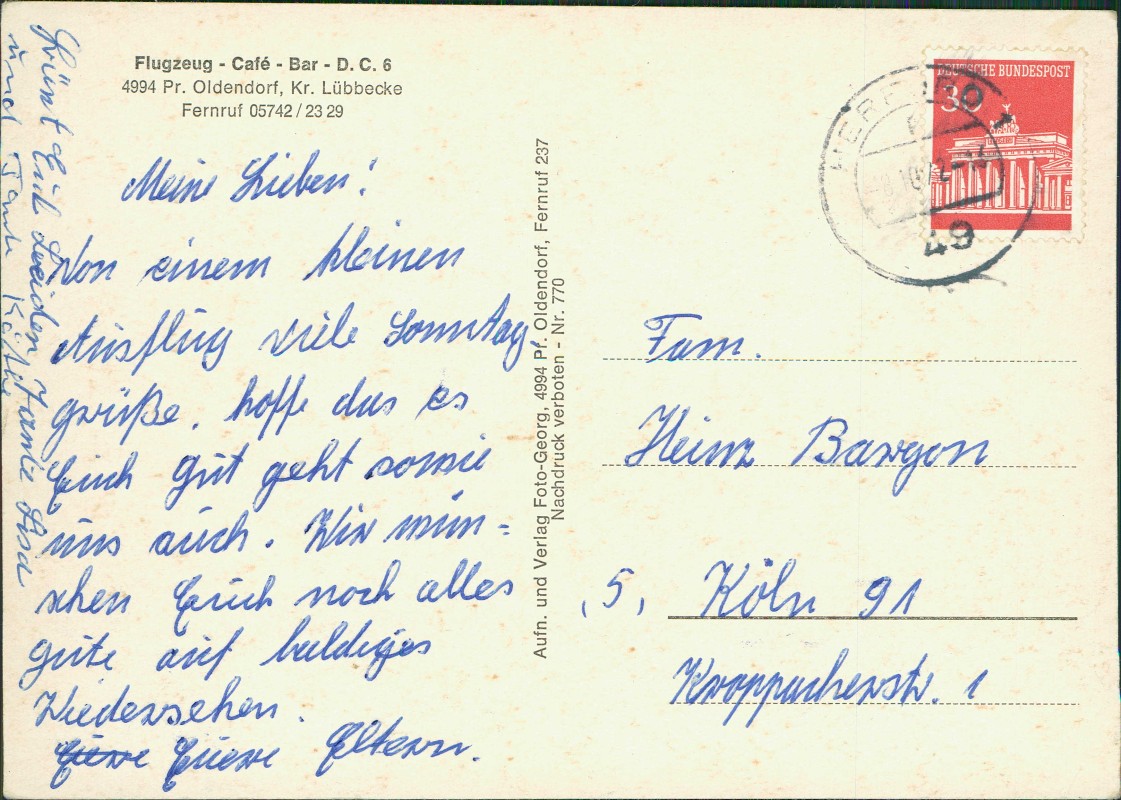 Flugzeug - Café - Bar - D. C. 6
4994 Pr. Oldendorf, Kr. Lübbecke
Fernruf 05742 / 23 29
Meine Lieben!
Von einem kleinen
Ausflug viele Sonntag
grüße, hoffe das es
Euch gut geht sowie
uns auch. Wir wün=
schen Euch noch alles
gute auf baldiges
Wiedersehen.
Euere Euere Eltern.
Grüßt Euch beiden Tante Lisa
und Tante Käthe
Aufn. und Verlag Foto-Georg, 4994 Pr. Oldendorf, Fernruf 237
Nachdruck verboten - Nr. 770
DEUTSCHE BUNDESPOST
30
HERFORD 1
49
Fam.
Heinz Bargon
5, Köln 91
Kroppacherstr. 1